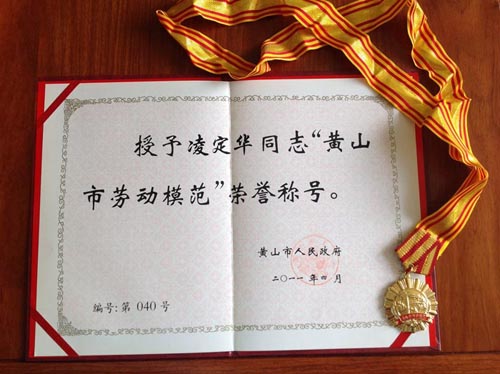 授予凌定华同志“黄山
市劳动模范”荣誉称号。
黄山市人民政府
二〇一一年四月
编号:第 040 号